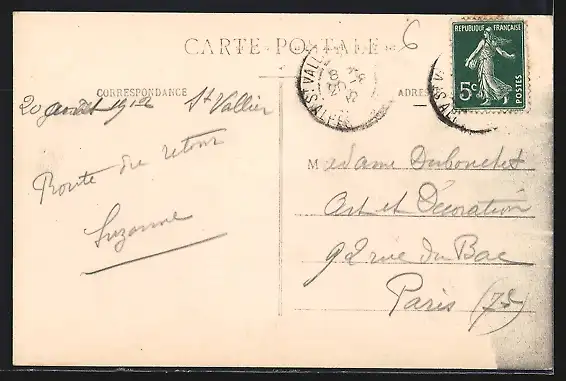 CARTE POSTALE
6
RÉPUBLIQUE FRANÇAISE
5c
POSTES
CORRESPONDANCE
20 août 1912 St Vallier
Route du retour
Suzanne
ST VALL
Madame Dubouchet
Art et Décoration
92 rue du Bac
Paris (7e)